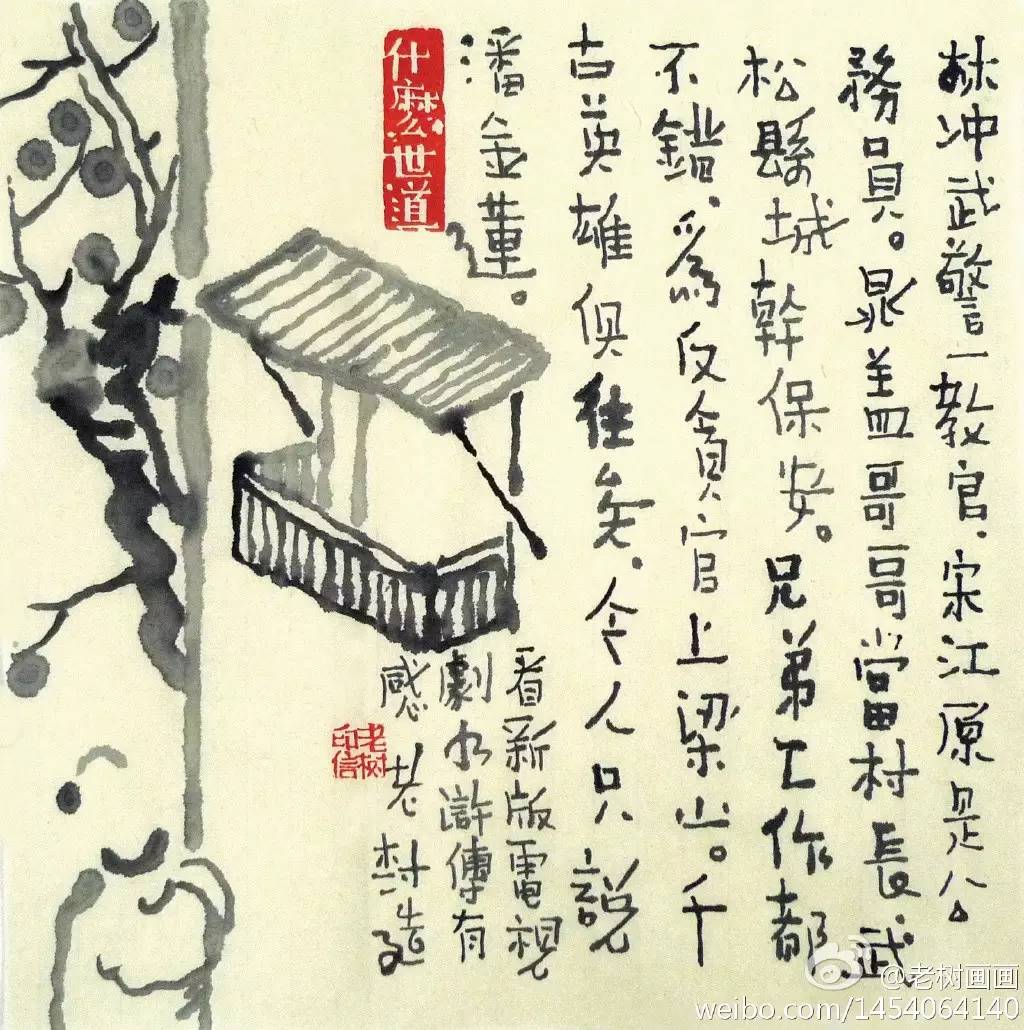 林冲武警一教官.宋江原是公
務員。晁盖哥哥當村長.武
松縣城幹保安。兄弟工作都
不錯.為反貪官上梁山。千
古英雄俱往矣.今人只說
潘金蓮。
什麽世道
看新版電視
劇水滸傳有
感 老树造
老树
印信
@老树画画
weibo.com/1454064140